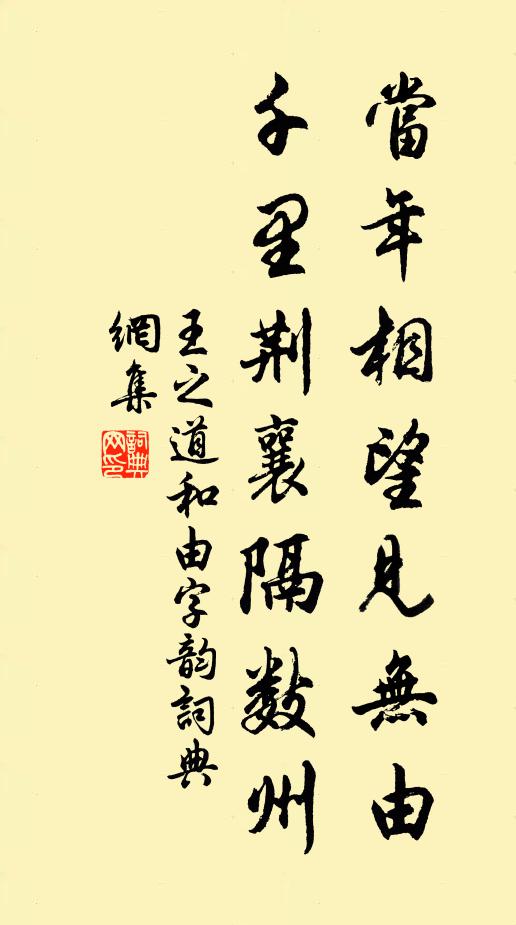 當年相望見無由
千里荆襄隔數州
王之道和由字韵詞典
網集
詞典